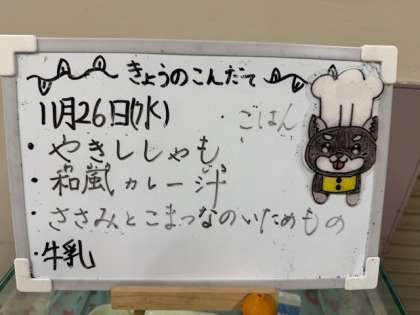 きょうのこんだて
11月26日(水)
・ごはん
・やきししゃも
・和嵐カレー汁
・ささみとこまつなのいためもの
・牛乳